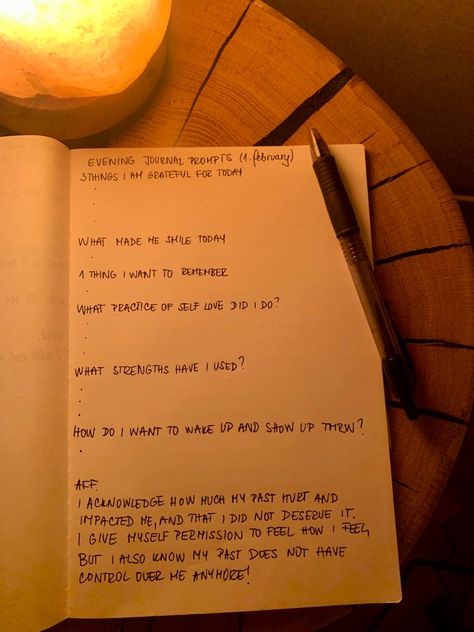 EVENING JOURNAL PROMPTS (1. february)
3 THINGS I AM GRATEFUL FOR TODAY
.
.
.
WHAT MADE ME SMILE TODAY
.
1 THING I WANT TO REMEMBER
.
WHAT PRACTICE OF SELF LOVE DID I DO?
.
.
.
WHAT STRENGTHS HAVE I USED?
.
.
.
HOW DO I WANT TO WAKE UP AND SHOW UP TMRW?
.
AFF
I ACKNOWLEDGE HOW MUCH MY PAST HURT AND
IMPACTED ME, AND THAT I DID NOT DESERVE IT.
I GIVE MYSELF PERMISSION TO FEEL HOW I FEEL,
BUT I ALSO KNOW MY PAST DOES NOT HAVE
CONTROL OVER ME ANYMORE!